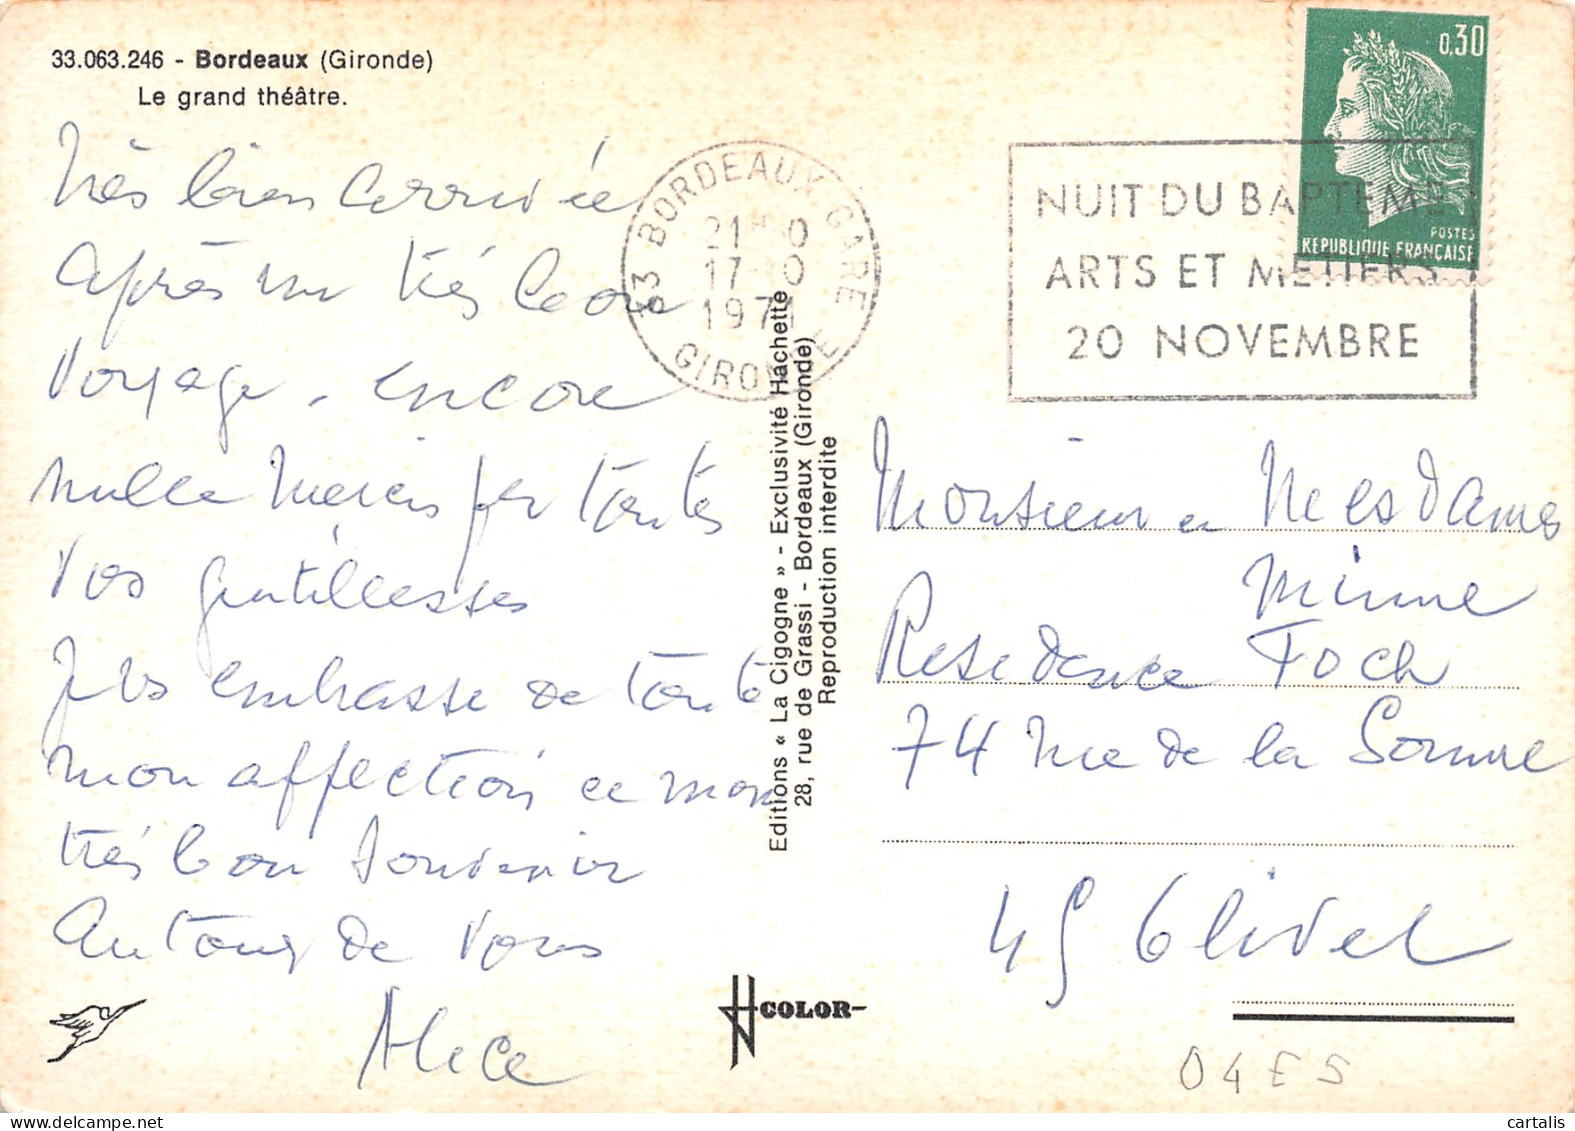 33.063.246 - Bordeaux (Gironde)
Le grand théâtre.
très bien arrivée
après un très bon
voyage. encore
mille mercis per toutes
vos gentillesses
Je vs embrasse de toute
mon affection et mon
très bon souvenir
autour de vous
Alice
33 BORDEAUX GARE
21H 0
17-10
1971
GIRONDE
NUIT DU BAPTEME
ARTS ET METIERS
20 NOVEMBRE
0,30
POSTES
REPUBLIQUE FRANÇAISE
Editions « La Cigogne » - Exclusivité Hachette
28, rue de Grassi - Bordeaux (Gironde)
Reproduction interdite
Monsieur et Mesdames
Minne
Residence Foch
74 rue de la Somme
45 Olivet
COLOR
04ES
www.delcampe.net
cartalis